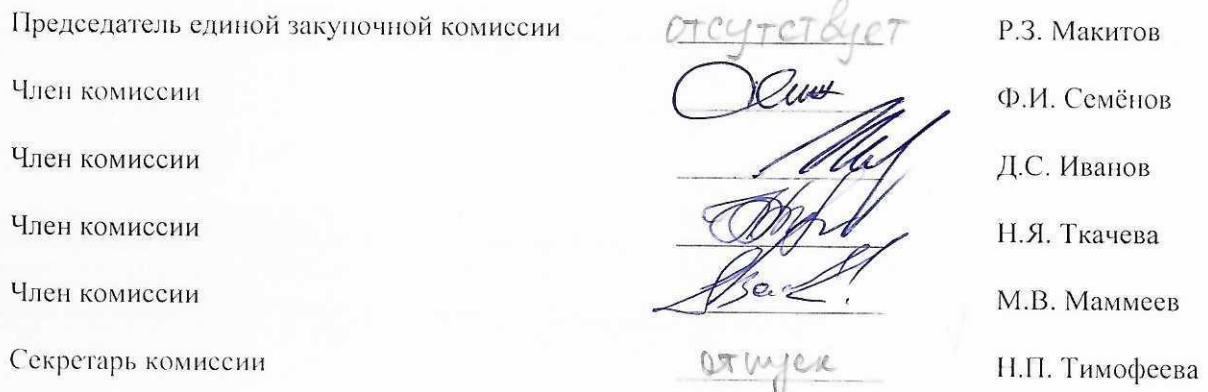 Председатель единой закупочной комиссии отсутствует Р.З. Макитов
Член комиссии Ф.И. Семёнов
Член комиссии Д.С. Иванов
Член комиссии Н.Я. Ткачева
Член комиссии М.В. Маммеев
Секретарь комиссии отпуск Н.П. Тимофеева